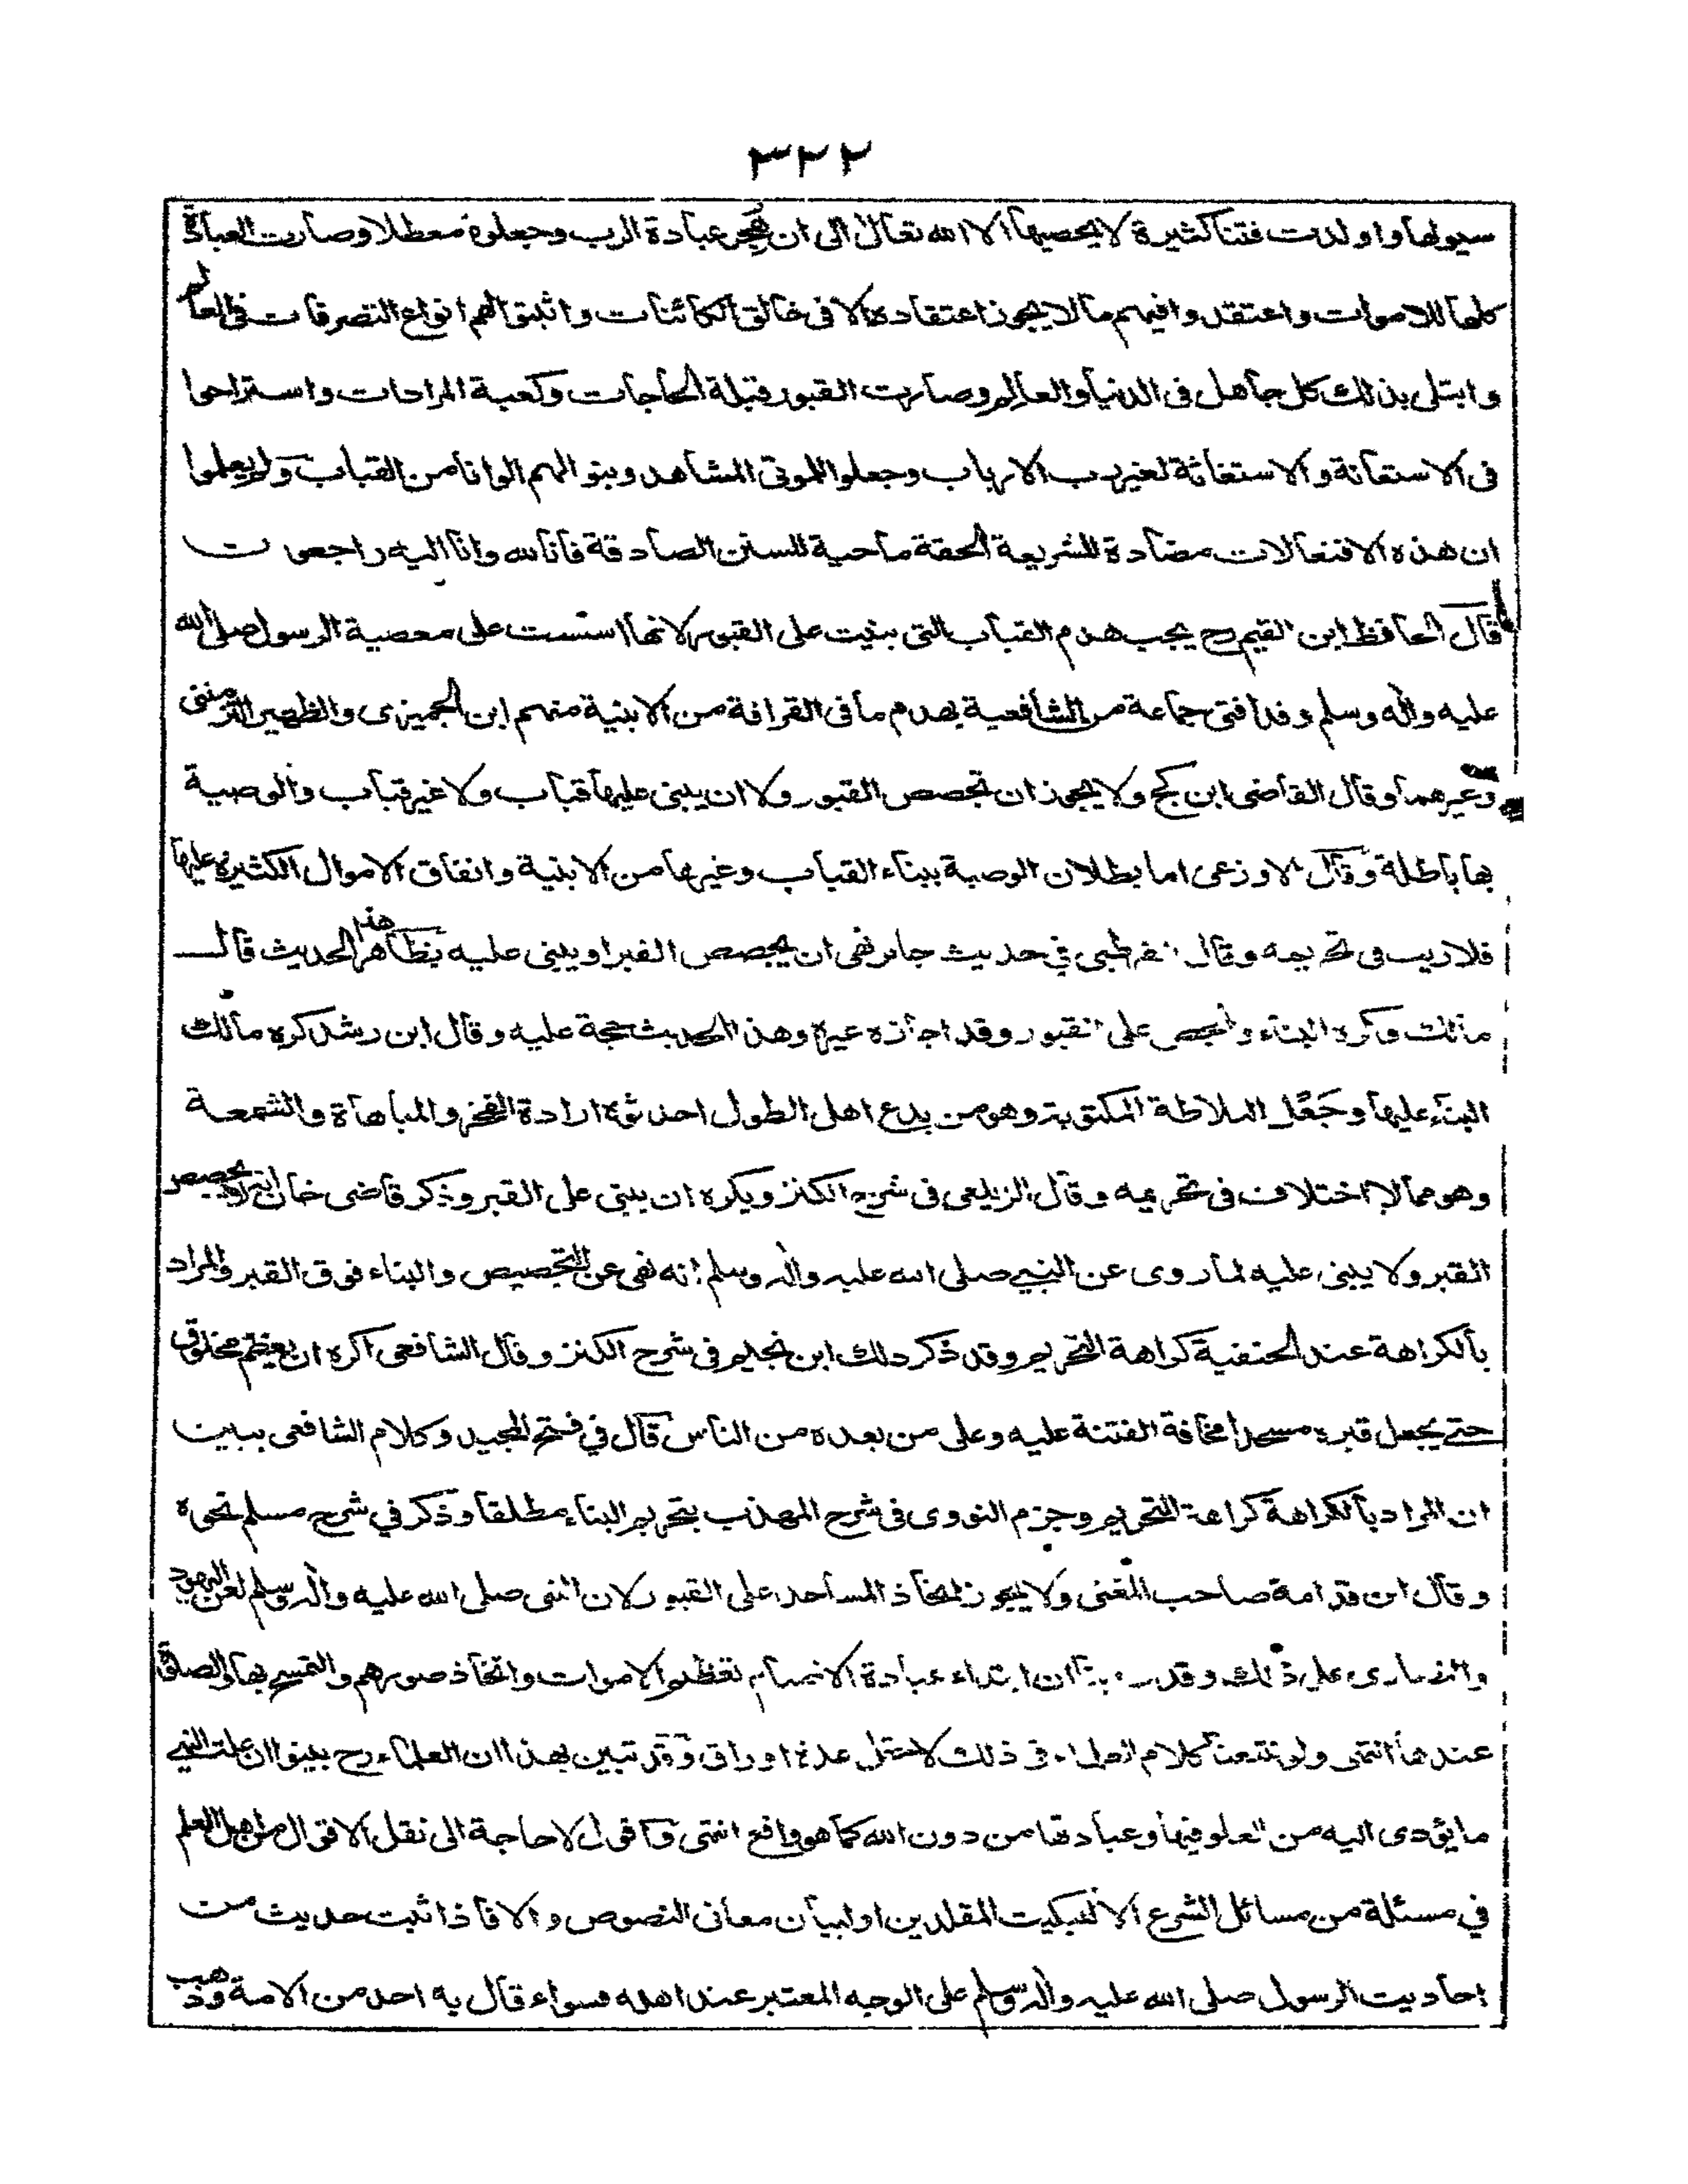 ٣٢٢
سيولها واولدت فتنا كثيرة لا يحصيها الا الله تعالى الى ان هجر عبادة الرب وجعلوه معطلا وصارت العبادة
كلها للاموات واعتقدوا فيهم ما لا يجوز اعتقاده الا فى خالق الكائنات واثبتوا لهم انواع التصرفات فى العالم
وابتلى بذلك كل جاهل فى الدنيا والعالم وصارت القبور قبلة الحاجات وكعبة المرادات واستراحوا
فى الاستعانة والاستغاثة لغير رب الارباب وجعلوا للموتى المشاهد وبنوا لهم الوانا من القباب ولم يعلموا
ان هذه الافتعالات مضادة للشريعة الحقة ماحية للسنن الصادقة فانا لله وانا اليه راجعون
قال الحافظ ابن القيم رح يجب هدم القباب التى بنيت على القبور لانها اسست على معصية الرسول صلى الله
عليه واله وسلم وقد افتى جماعة من الشافعية بهدم ما فى القرافة من الابنية منهم ابن الجميزى والظهير الترمنتى
وغيرهما وقال القاضى ابن كج ولا يجوز ان تجصص القبور ولا ان يبنى عليها قباب ولا غير قباب والوصية
بها باطلة وقال الاوزعى اما بطلان الوصية ببناء القباب وغيرها من الابنية وانفاق الاموال الكثيرة عليها
فلا ريب فى تحريمه وقال القرطبى في حديث جابر نهى ان يجصص القبر او يبنى عليه بظاهر هذا الحديث قال
مالك وكره البناء والجص على القبور وقد اجازه غيره وهذا الحديث حجة عليه وقال ابن رشد كره مالك
البناء عليها وجعل البلاطة المكتوبة وهو من بدع اهل الطول احدثوه ارادة الفخر والمباهاة والشمعة
وهو مما لا اختلاف فى تحريمه وقال الزيلعى فى شرح الكنز ويكره ان يبنى على القبر وذكر قاضى خان انه لا يجصص
القبر ولا يبنى عليه لما روى عن النبي صلى الله عليه واله وسلم انه نهى عن التجصيص والبناء فوق القبر والمراد
بالكراهة عند الحنفية كراهة التحريم وقد ذكر ذلك ابن نجيم فى شرح الكنز وقال الشافعى اكره ان يعظم مخلوق
حتے يجعل قبره مسجدا مخافة الفتنة عليه وعلى من بعده من الناس قال في فتح المجيد وكلام الشافعى يبين
ان المراد بالكراهة كراهة التحريم وجزم النووى فى شرح المهذب بتحريم البناء مطلقا وذكر في شرح مسلم نحوه
وقال ابن قدامة صاحب المغنى ولا يجوز اتخاذ المساجد على القبور لان النبى صلى الله عليه واله وسلم لعن اليهود
والنصارى على ذلك وقد روينا ان ابتداء عبادة الاصنام تعظيم الاموات واتخاذ صورهم والتمسح بها والصلوة
عندها انتهى ولو تتبعنا كلام العلماء فى ذلك لاحتمل عدة اوراق وقد تبين بهذا ان العلماء رح بينوا ان علت النهي
ما يؤدى اليه من الغلو فيها وعبادتها من دون الله كما هو واقع انتهى واقول لا حاجة الى نقل الاقوال من اهل العلم
في مسئلة من مسائل الشرع الا لتبكيت المقلدين او لبيان معانى النصوص والا فاذا ثبت حديث من
احاديث الرسول صلى الله عليه واله وسلم على الوجه المعتبر عند اهله فسواء قال به احد من الامة وذهب